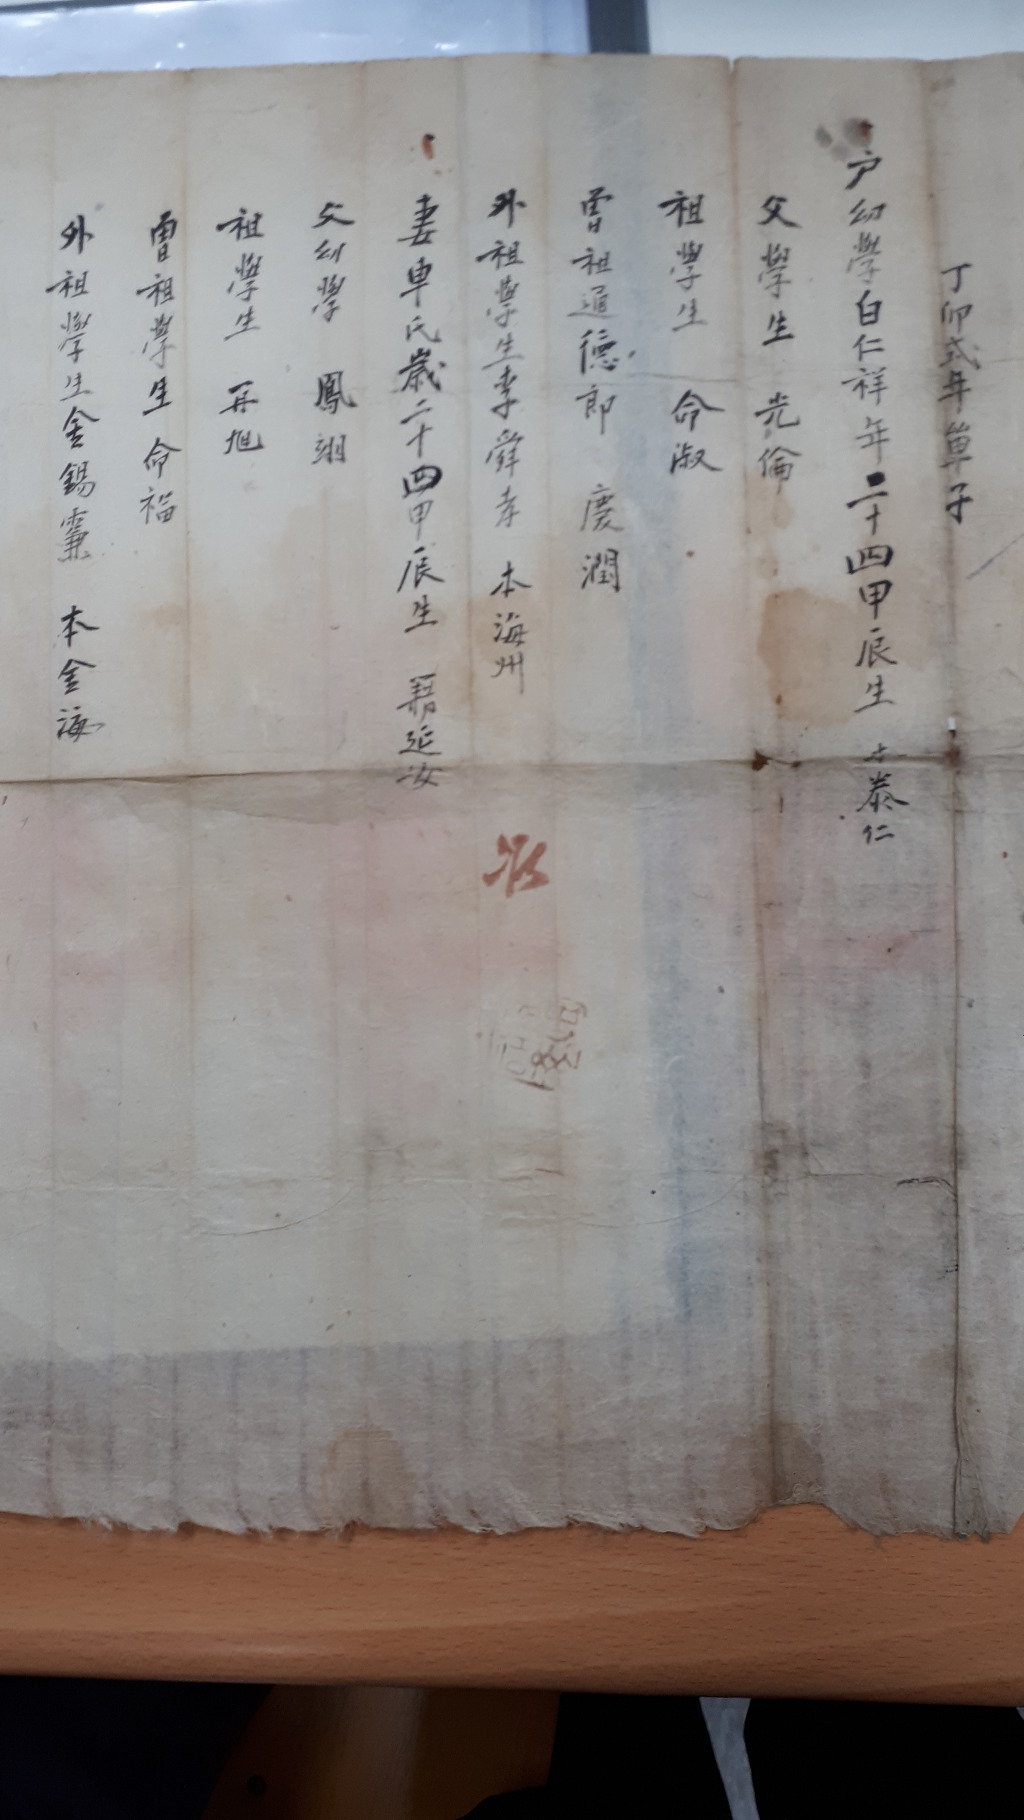 丁卯式年單子
戶幼學白仁祥年二十四甲辰生 本泰仁
父學生 光倫
祖學生 命淑
曾祖通德郎 慶潤
外祖學生李舜孝 本海州
妻車氏歲二十四甲辰生 籍延安
父幼學 鳳翊
祖學生 再旭
曾祖學生 命福
外祖學生金錫 本金海